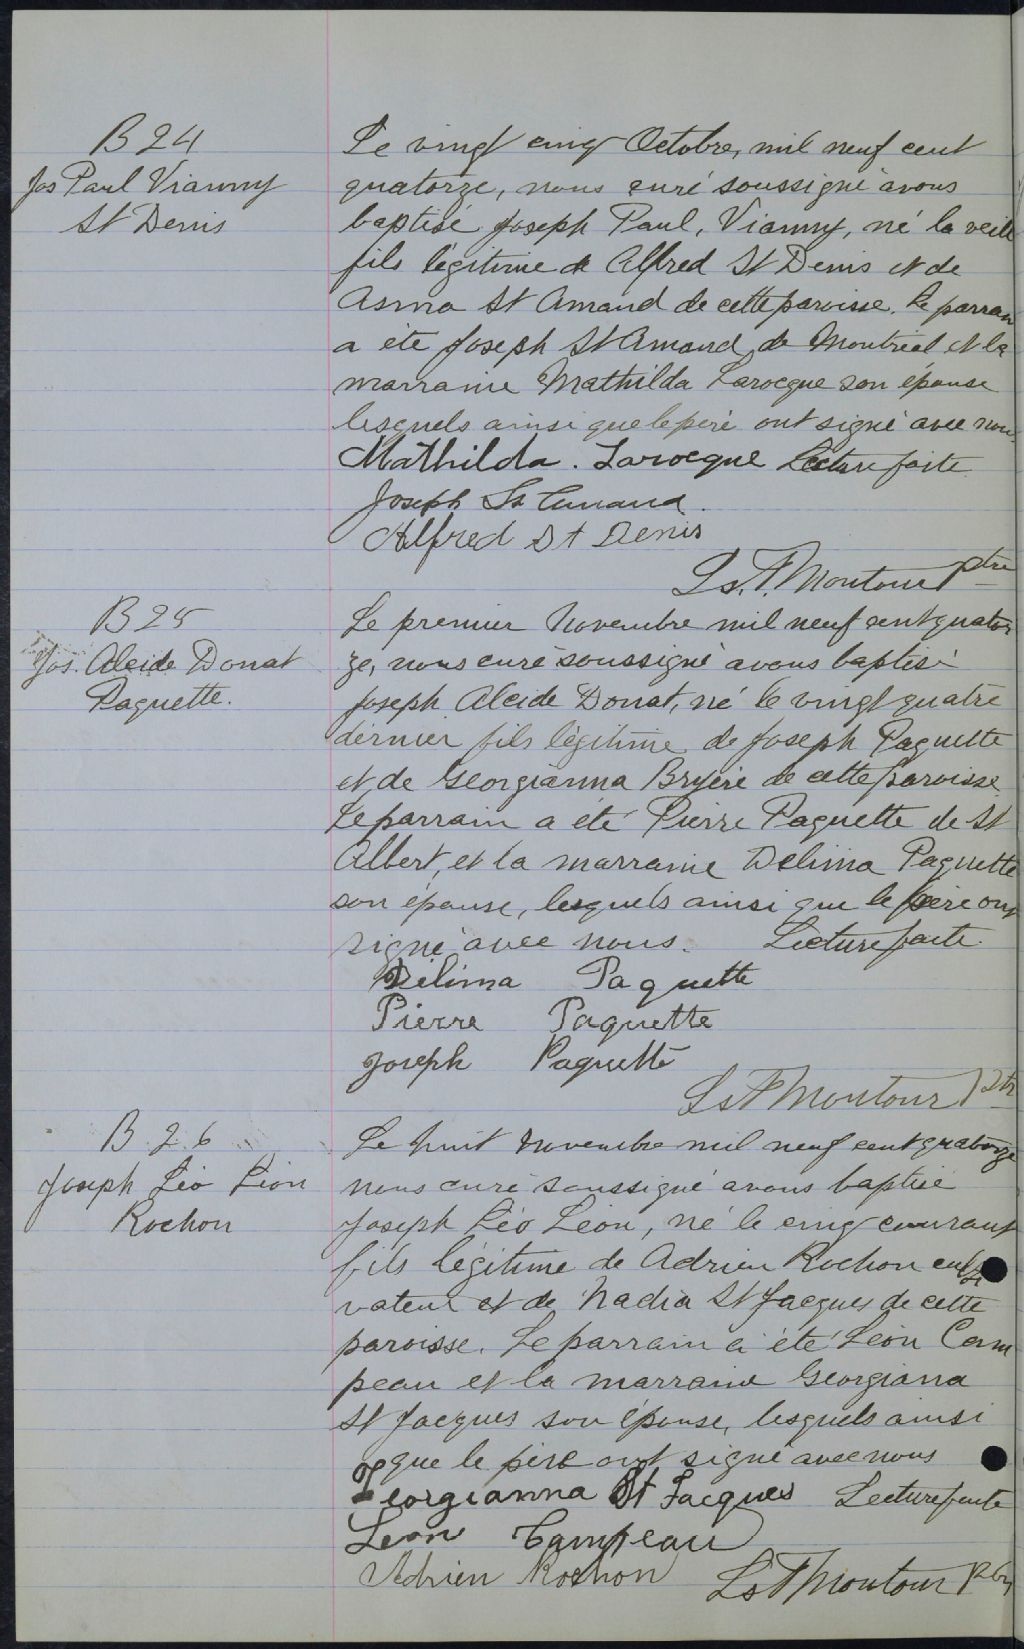 B 24
Jos Paul Vianny
St Denis
Le vingt cinq Octobre, mil neuf cent
quatorze, nous curé soussigné avons
baptisé Joseph Paul, Vianny, né la veille
fils légitime de Alfred St Denis et de
Anna St Amand de cette paroisse. Le parrain
a été Joseph St Amand, de Montréal et la
marraine Mathilda Larocque son épouse
lesquels ainsi que le père ont signé avec nous.
Mathilda. Larocque Lecture faite
Joseph St Amand.
Alfred St Denis
Ls. F. Moutour Ptre
B 25
Jos. Alcide Donat
Paquette.
Le premier Novembre mil neuf cent quator
ze, nous curé soussigné avons baptisé
Joseph Alcide Donat, né le vingt quatre
dernier fils légitime de Joseph Paquette
et de Georgianna Bryère de cette paroisse
Le parrain a été Pierre Paquette de St
Albert, et la marraine Delima Paquette
son épouse, lesquels ainsi que le père ont
signé avec nous. Lecture faite.
Delima Paquette
Pierre Paquette
Joseph Paquette
Ls F Moutour Ptr
B 26
Joseph Léo Léon
Rochon
Le huit Novembre mil neuf cent quatorze
nous curé soussigné avons baptisé
Joseph Léo Léon, né le cinq courant
fils légitime de Adrien Rochon culti
vateur et de Nadia St Jacques de cette
paroisse. Le parrain a été Léon Cam
peau et la marraine Georgiana
St Jacques son épouse, lesquels ainsi
que le père ont signé avec nous
Georgianna St Jacques Lecture faite
Leon Campeau
Adrien Rochon Ls F Moutour Ptr